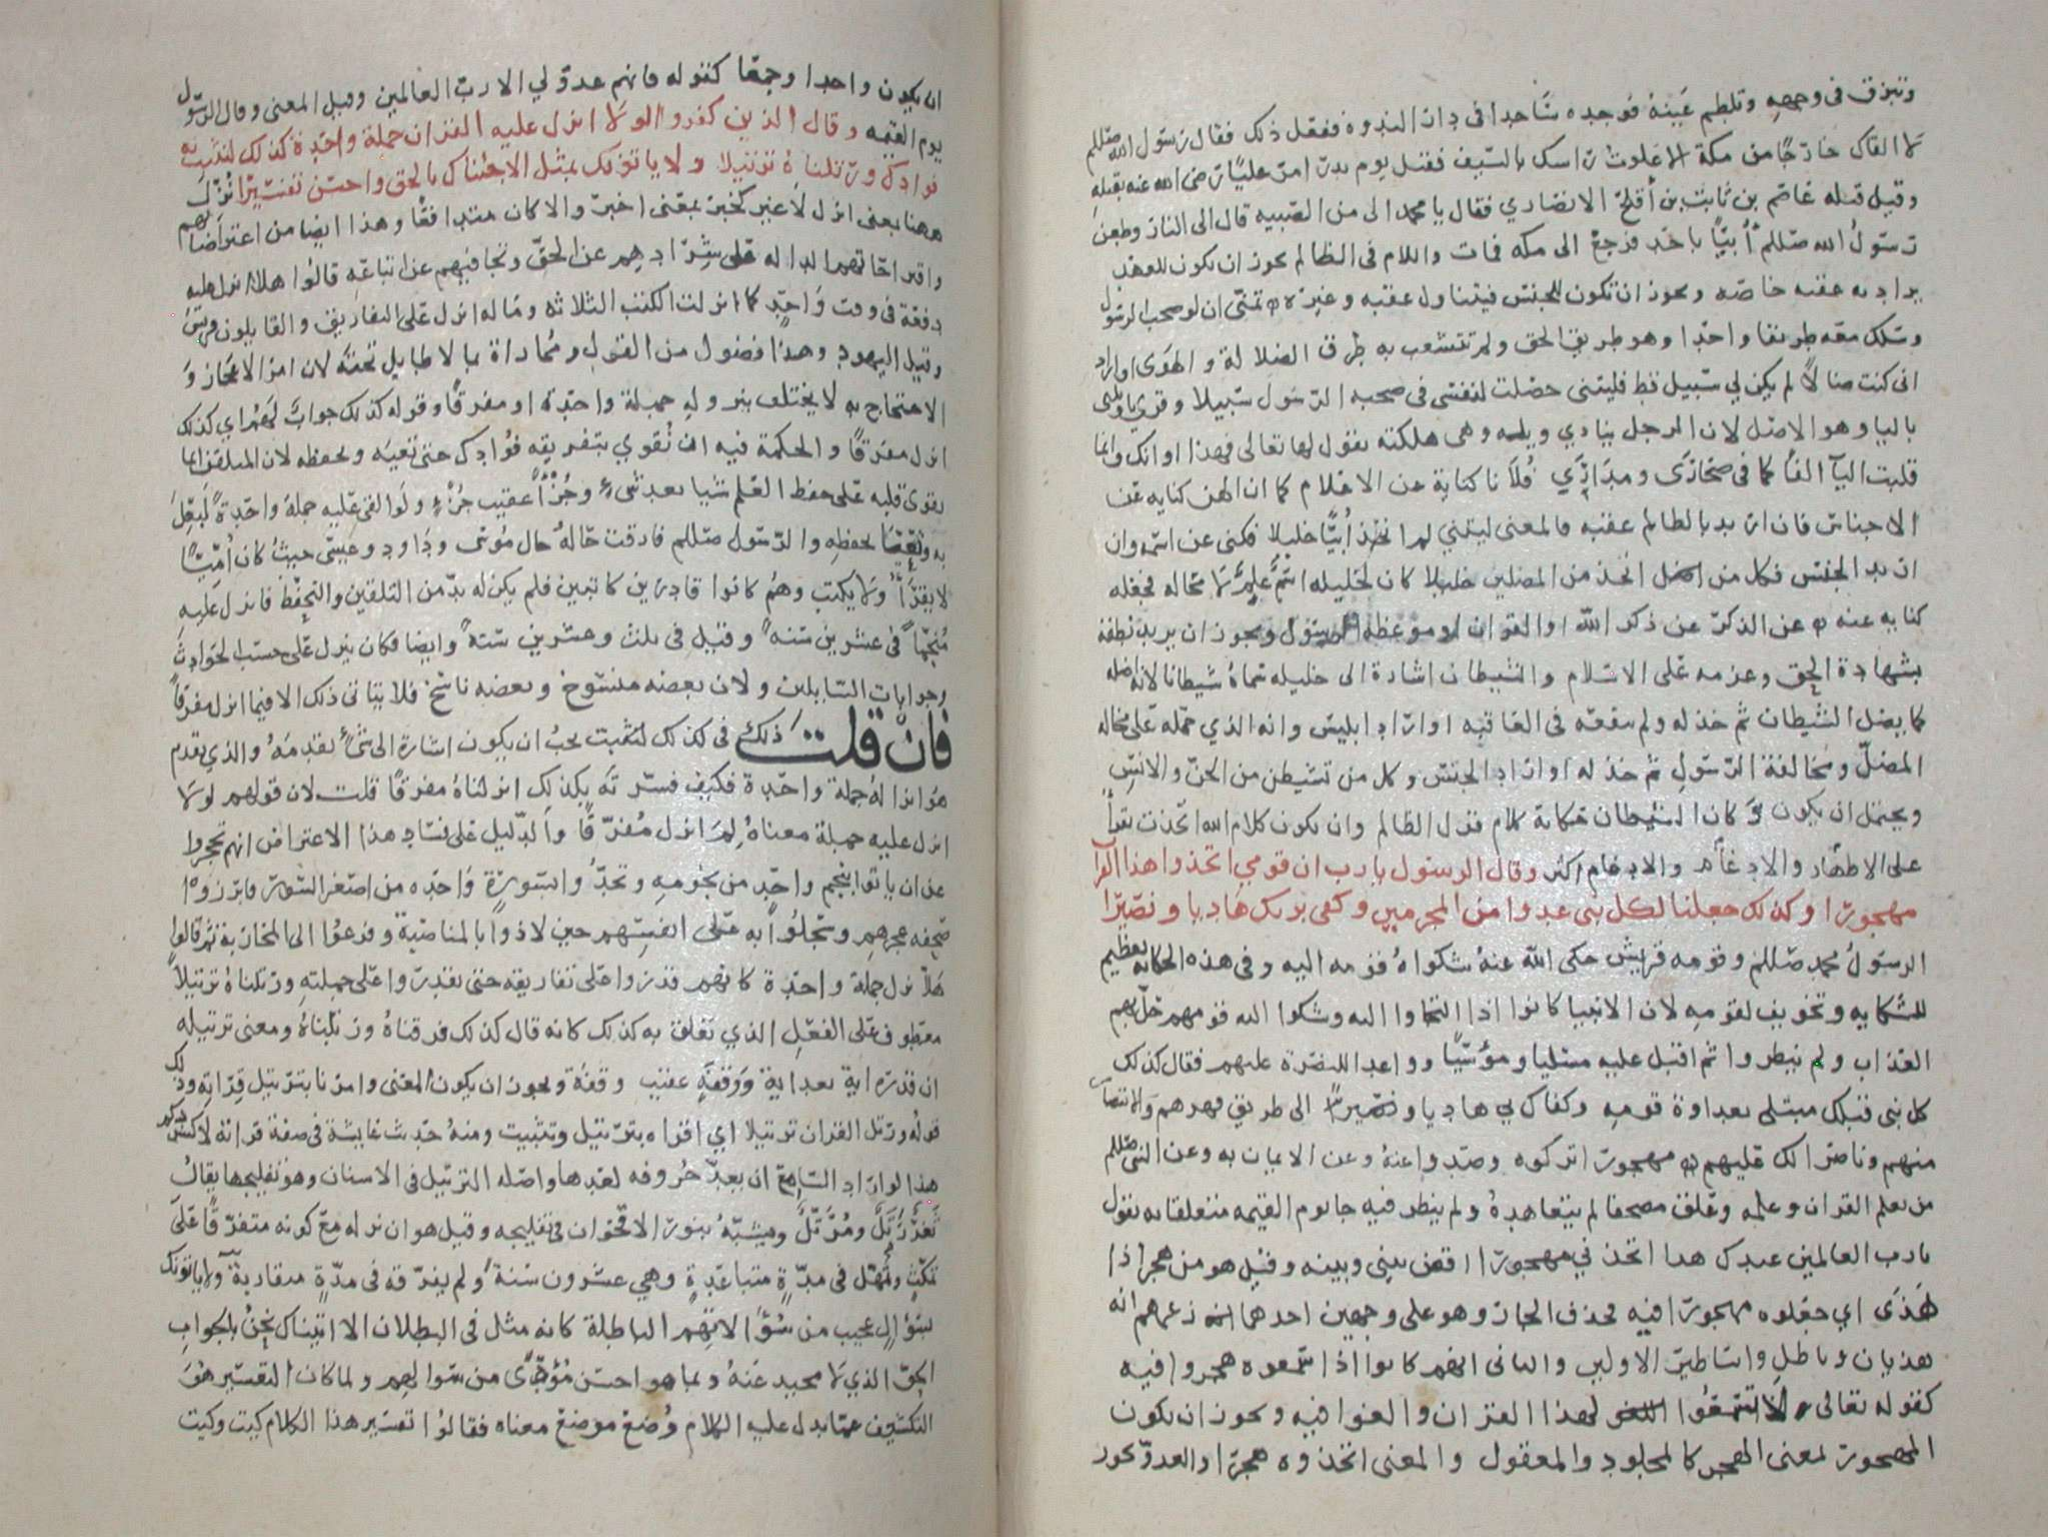 وتبزق في وجهه وتلطم عينه فوجده ساجدا في دار الندوة ففعل ذلك فقال رسول الله صللم
لا القاك خارجًا من مكة الا علوت راسك بالسيف فقتل يوم بدر امر عليًا رضى الله عنه بقتله
وقيل قتله عاصم بن ثابت بن أقلح الانصاري فقال يا محمد الى من الصبيه قال الى النار وطعن
رسولُ الله صللم أُبيًّا باحد فرجع الى مكه فمات واللام فى الظالم يحوز ان يكون للعهد
يراد به عقبه خاصه ويحوز ان تكون للجنس فيتناول عقبه وغيره تمنى ان لو صحب الرسول
وسلك معه طريقا واحدا وهو طريق الحق ولم تتشعب به طرق الضلالة والهوى او اراد
انى كنت ضالاً لم يكن لي سبيل قط فليتنى حصلت لنفسى فى صحبه الرسول سبيلا وقري يا ويلتى
باليا وهو الاصل لان الرجل ينادي ويلته وهى هلكته يقول لها تعالى فهذا اوانك وانما
قلبت اليآ الفًا كما فى صحارَى ومدارَي فُلانا كناية عن الاعلام كما ان الهن كنايه عن
الاجناس فان اريد بالظالم عقبه فالمعنى ليتني لم اتخذ أُبيًّا خليلا فكنى عن اسمه وان
اريد الجنس فكل من اتخذ من المضلين خليلا كان لخليله اسمُ علمٌ لا محاله فجعله
كنايه عنه عن الذكر عن ذكر الله او القران او موعظه الرسول ويحوز ان يريد نطقه
بشهادة الحق وعزمه على الاسلام والشيطان اشارة الى خليله سماهُ شيطانا لانه اضله
كما يضل الشيطان ثم خذله ولم ينفعه فى العاقبه او اراد ابليس وانه الذي حمله على مخاله
المضلّ ومخالفة الرسولِ ثم خذله او اراد الجنس وكل من تشيطن من الجن والانس
ويحتمل ان يكون وَكان الشيطان حكاية كلام الظالم وان يكون كلام الله اتخذت يقرأ
على الاظهار والادغام والادغام اكثر وقال الرسول يا رب ان قومي اتخذوا هذا القرآ
مهجورًا وكذلك جعلنا لكل نبى عدوا من المجرمين وكفى بربك هاديا ونصيرًا
الرسولُ محمد صللم وقومه قريش حكى الله عنهُ شكواهُ قومه اليه وفى هذه الحكايه تعظيم
للشكايه وتخويف لقومه لان الانبيا كانوا اذا التجاوا اليه وشكوا اليه قومهم حلّ بهم
العذاب ولم ينظروا ثم اقبل عليه مسليا ومؤسيًا وواعدا للنصرة عليهم فقال كذلك
كل نبى قبلك مبتلى بعداوة قومه وكفاك بي هاديا ونصيرًا الى طريق قهرهم والانتصار
منهم وناصرا لك عليهم مهجورًا تركوه وصدوا عنهُ وعن الايمان به وعن النبى صللم
من تعلم القران وعلمه وعلق مصحفا لم يتعاهدهُ ولم ينظر فيه جا يوم القيمه متعلقا به يقول
يا رب العالمين عبدك هذا اتخذ ني مهجورًا اقض بينى وبينه وقيل هو من هجر اذا
هذَى اي جعلوه مهجورًا فيه فحذف الجار وهو على وجهين احدهما زعمهم انه
هذيان وباطل واساطير الاولين والثانى انهم كانوا اذا سمعوه هجروا فيه
كقوله تعالى لا تسمَعُوا لهذا القران والغوا فيه ويحوز ان يكون
المهجور بمعنى الهجر كالمجلود والمعقول والمعنى اتخذوه هجرًا والعدو يحوز
ان يكون واحدا وجمعًا كقوله فانهم عدوّ لي الا ربّ العالمين وقيل المعنى وقال الرسول
يوم القيمه وقال الذين كفروا لولا انزل عليه القران جملة واحدة كذلك لنثبت به
فوادك ورتلناهُ ترتيلا ولا ياتونك بمثل الا جئناك بالحق واحسن تفسيرًا نُزّل
ههنا بمعنى انزل لا غير كخبر بمعنى اخبر والا كان متدافعًا وهذا ايضا من اعتراضاتهم
واقتراحاتهم الداله على شرادهم عن الحق وتجافيهم عن اتباعه قالوا هلا انزل عليه
دفعة فى وقت وَاحدٍ كما انزلت الكتب الثلاثه وما له انزل على التفاريق والقايلون قريش
وقيل اليهود وهذا فضول من القول ومُماراة بما لا طايل تحته لان امر الاعجاز وَ
الاحتجاج به لا يختلف بنزوله جملة واحدة او مفرقًا وقوله كذلك جوابٌ لهُم اي كذلك
انزل مفرقًا والحكمة فيه ان نُقوي بتفريقه فوادك حتى تعيَه وتحفظه لان المتلقن انما
يقوى قلبه على حفظ العلم شيا بعد شىءٍ وجُزْأً عقيب جُزْءٍ ولو القى عليه جملة واحدة لَبَعِلَ
به وتَعَيَّا بحفظه والرسول صللم فارقت حالهُ حال مُوسَى وداود وعيسى حيثُ كان أُمِّيًّا
لا يقرَأُ ولا يكتب وهُم كانوا قارئين كاتبين فلم يكن له بدّ من التلقين والتحفظ فانزل عليه
مُنجّمًا فى عشرين سنه وقيل فى ثلث وعشرين سنة وايضا فكان ينزل على حسب الحوادث
وجوابات السايلين ولان بعضه منسوخ وبعضه ناسخ فلا يتاتى ذلك الا فيما انزل مفرقًا
فان قلت ذلك فى كذلك لنثبت يحبُ ان يكون اشارة الى شىءٍ تقدمهُ والذي تقدم
هو انزالهُ جملة واحدة فكيف فسرته بكذلك انزلناهُ مفرقًا قلت لان قولهم لولا
انزل عليه جملة معناهُ لِمَ انزل مُفرّقًا والدليل على فساد هذا الاعتراض انهم عجزوا
عن ان ياتوا بنجم واحدٍ من نجُومه وتحدُّوا بسورةٍ واحده من اصغر السور فابرزوا
صحيفه عجزهم وسجلُوا به على انفسهم حين لاذوا بالمناصبة وفزعُوا الى المحاربه ثم قالوا
هلا نزل جملة واحدة كانهم قدروا على تفاريقه حتى يقدروا على جملتهِ ورتلناهُ ترتيلاً
معطوف على الفعلِ الذي تعلق به كذلك كانه قال كذلك فرقناهُ ورتلناهُ ومعنى ترتيله
ان قدره اية بعد اية وَوقفَةً عقيب وقفة ويحوز ان يكون المعنى وامرنا بترتيل قِرَاته وذلك
قولُه ورتل القران ترتيلا اي اقراه بترتيل وتثبيت ومنهُ حديث عايشة فى صفة قراته لا كسردكم
هذا لو اراد السامع ان يعدّ حُروفه لعدها واصله الترتيل فى الاسنان وهو تفليجها يقالُ
ثغرٌ رَتَلٌ ومُرتَّلٌ ويشبّهُ بنور الاقحوان فى تفليجه وقيل هو ان نزله مع كونه متفرقًا على
تمكثٍ وتمهّل فى مدّةٍ متباعدةٍ وهي عشرون سنة ولم يفرقه فى مدّةٍ متقاربةٍ ولا ياتونك
بسؤالٍ عجيب من سُؤالاتهم الباطلة كانه مثل فى البطلان الا اتيناك نحنُ بالجوابِ
الحقّ الذي لا محيد عنهُ وبما هو احسن مُؤَدّىً من سوالهم ولما كان التفسير هُوَ
التكشيف عما يدل عليه الكلام وُضعَ موضعَ معناه فقالُوا تفسير هذا الكلام كيت وكيت